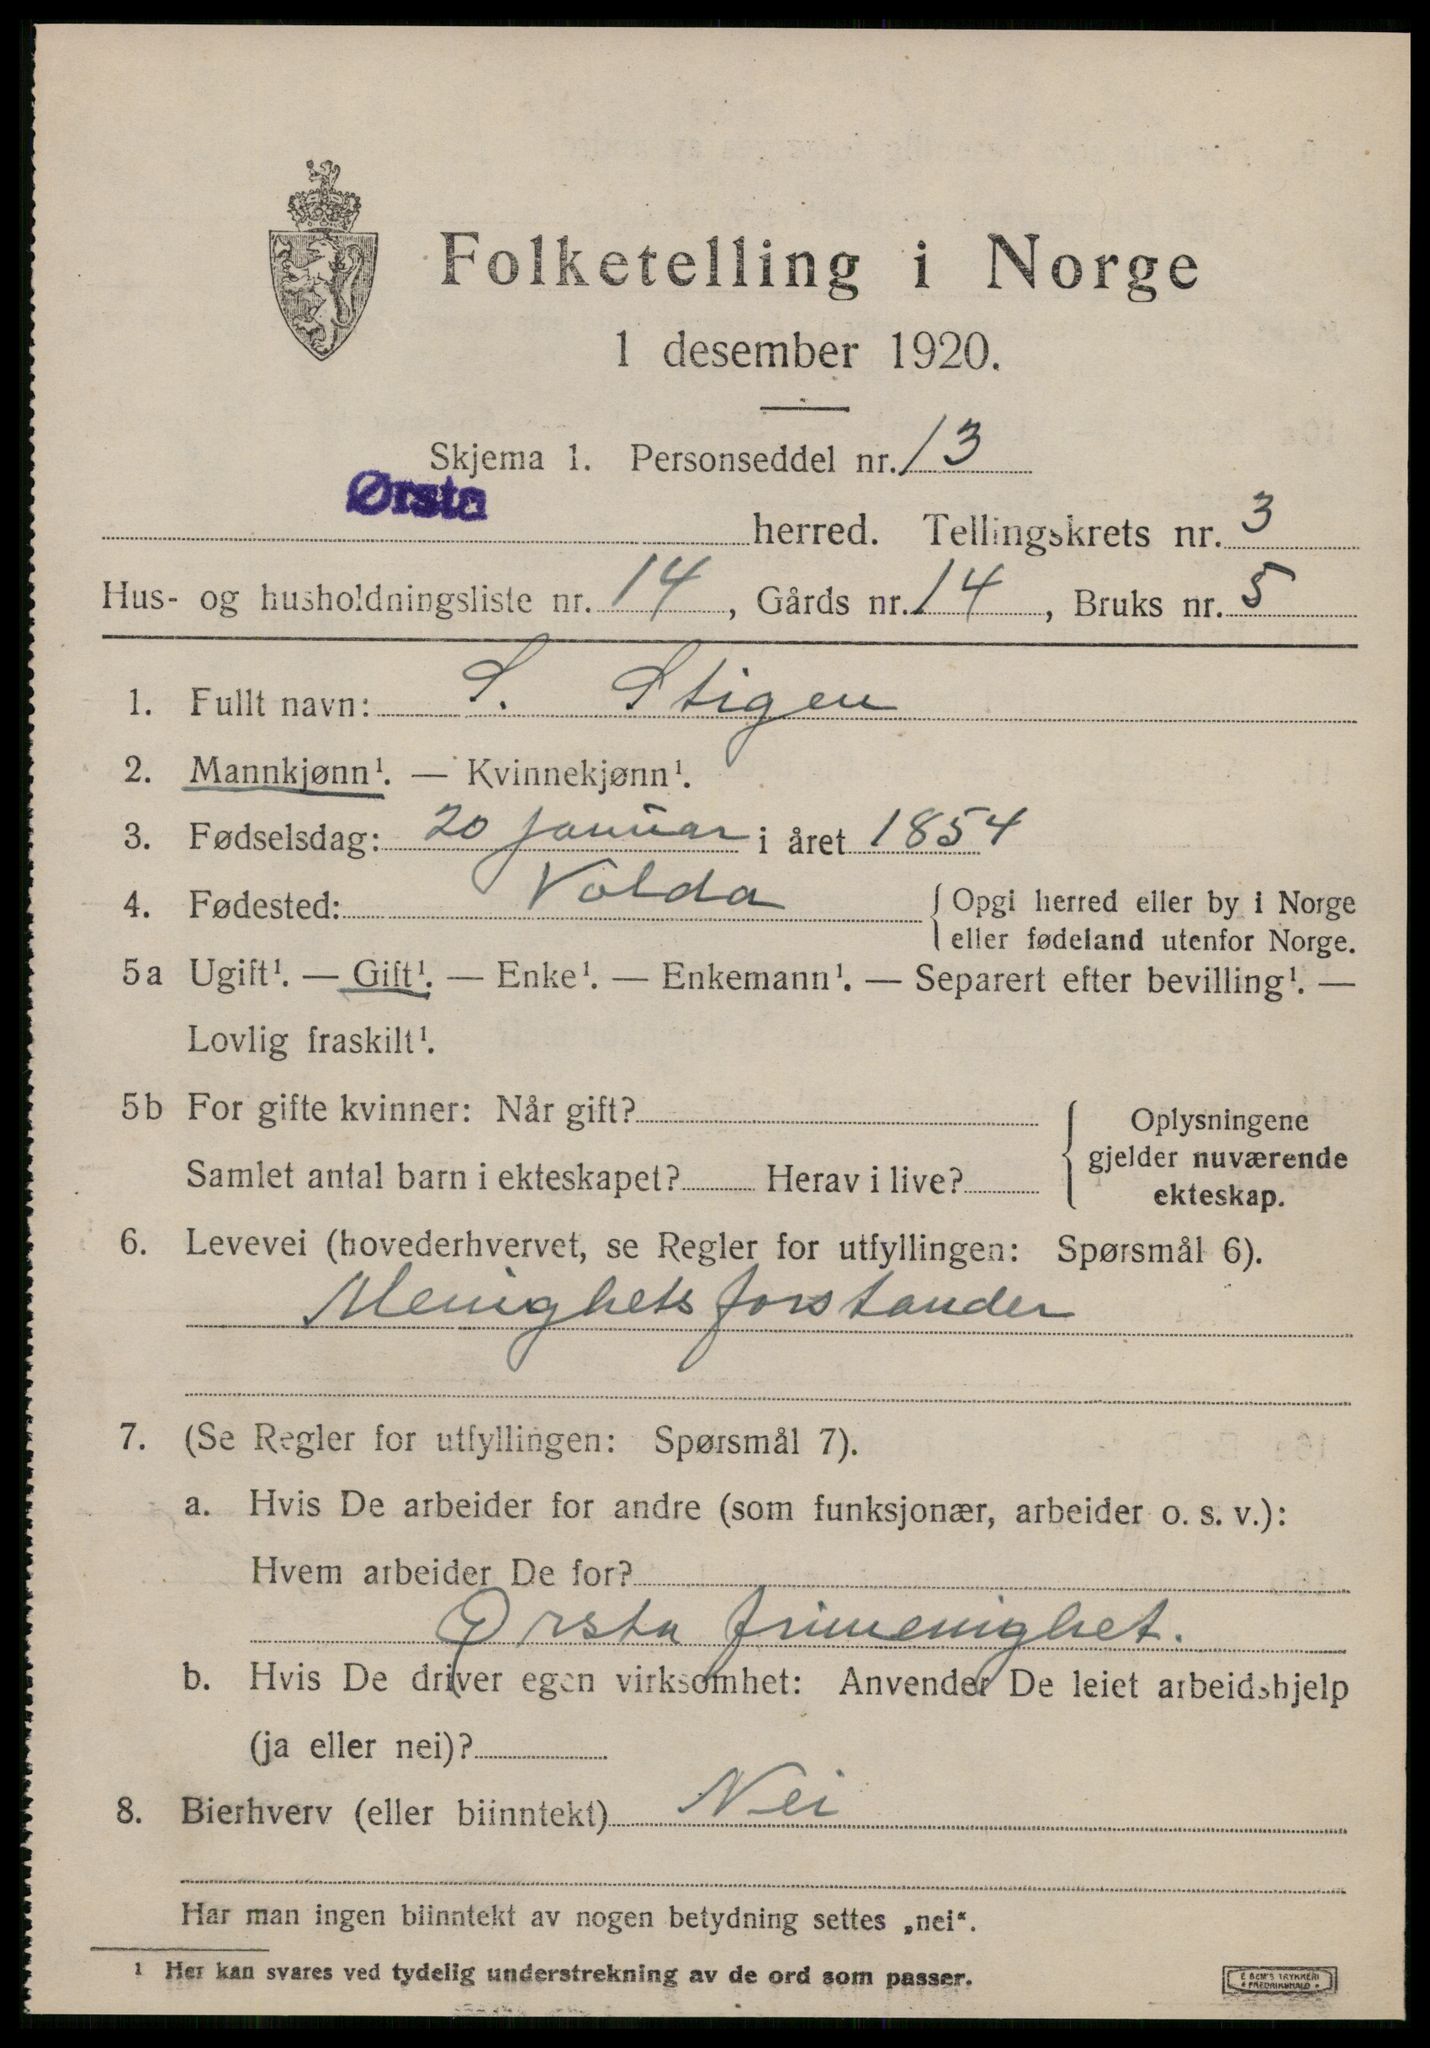 Folketelling i Norge
1 desember 1920.
Skjema 1. Personseddel nr. 13
Ørsta herred. Tellingskrets nr. 3
Hus- og husholdningsliste nr. 14, Gårds nr. 14, Bruks nr. 5
1. Fullt navn: S. Stigen
2. Mannkjønn¹. — Kvinnekjønn¹.
3. Fødselsdag: 20 januar i året 1854
4. Fødested: Volda { Opgi herred eller by i Norge
eller fødeland utenfor Norge.
5a Ugift¹. — Gift¹. — Enke¹. — Enkemann¹. — Separert efter bevilling¹. —
Lovlig fraskilt¹.
5b For gifte kvinner: Når gift?
Samlet antal barn i ekteskapet? Herav i live?
Oplysningene
gjelder nuværende
ekteskap.
6. Levevei (hovederhvervet, se Regler for utfyllingen: Spørsmål 6).
Menighetsforstander
7. (Se Regler for utfyllingen: Spørsmål 7).
a. Hvis De arbeider for andre (som funksjonær, arbeider o. s. v.):
Hvem arbeider De for?
Ørsta frimenighet.
b. Hvis De driver egen virksomhet: Anvender De leiet arbeidshjelp
(ja eller nei)?
8. Bierhverv (eller biinntekt) Nei
Har man ingen biinntekt av nogen betydning settes „nei“.
¹ Her kan svares ved tydelig understrekning av de ord som passer.
E SEM'S TRYKKERI
FREDRIKSHALD